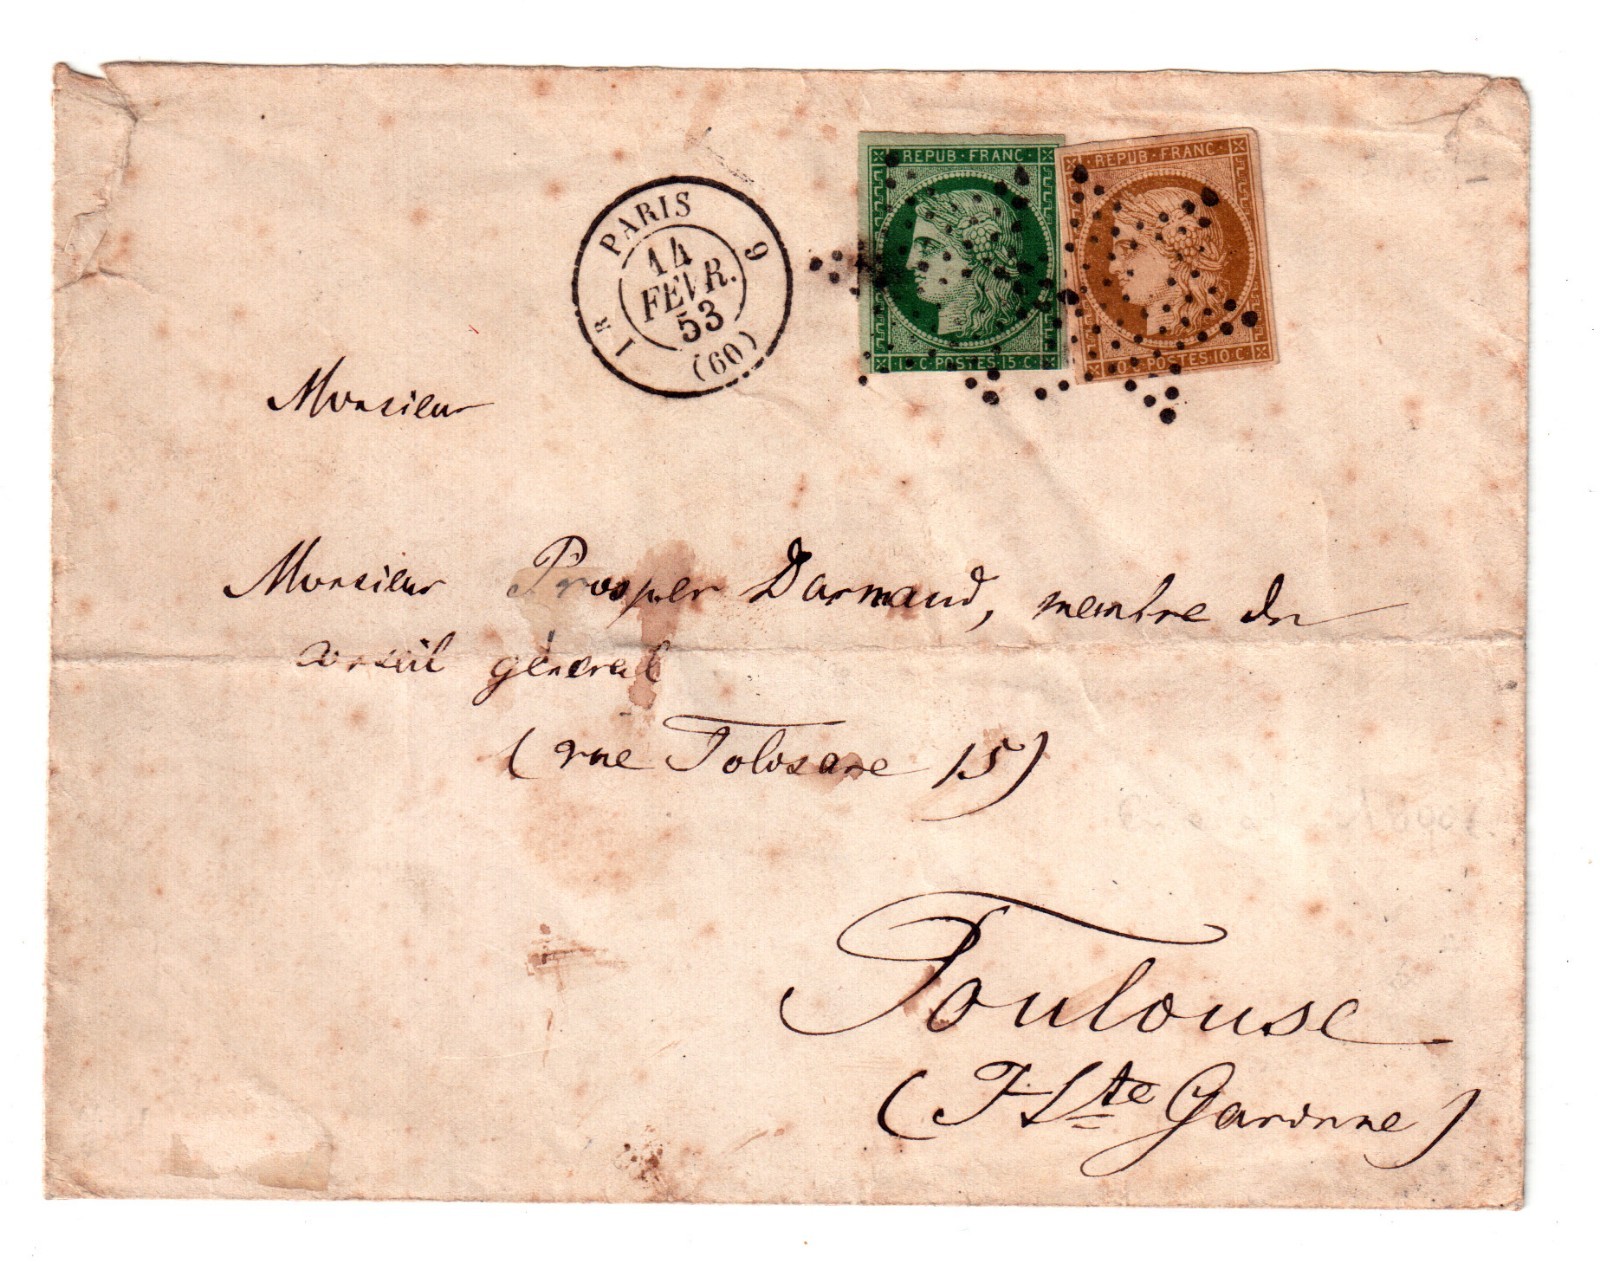 PARIS
1 R
9
14
FEVR.
53
(60)
REPUB · FRANC ·
15 C · POSTES · 15 C
REPUB · FRANC ·
10 C · POSTES · 10 C
Monsieur
Monsieur Prosper Darnaud, membre du
conseil général
(rue Tolosane 15)
Toulouse
(Hte Garonne)